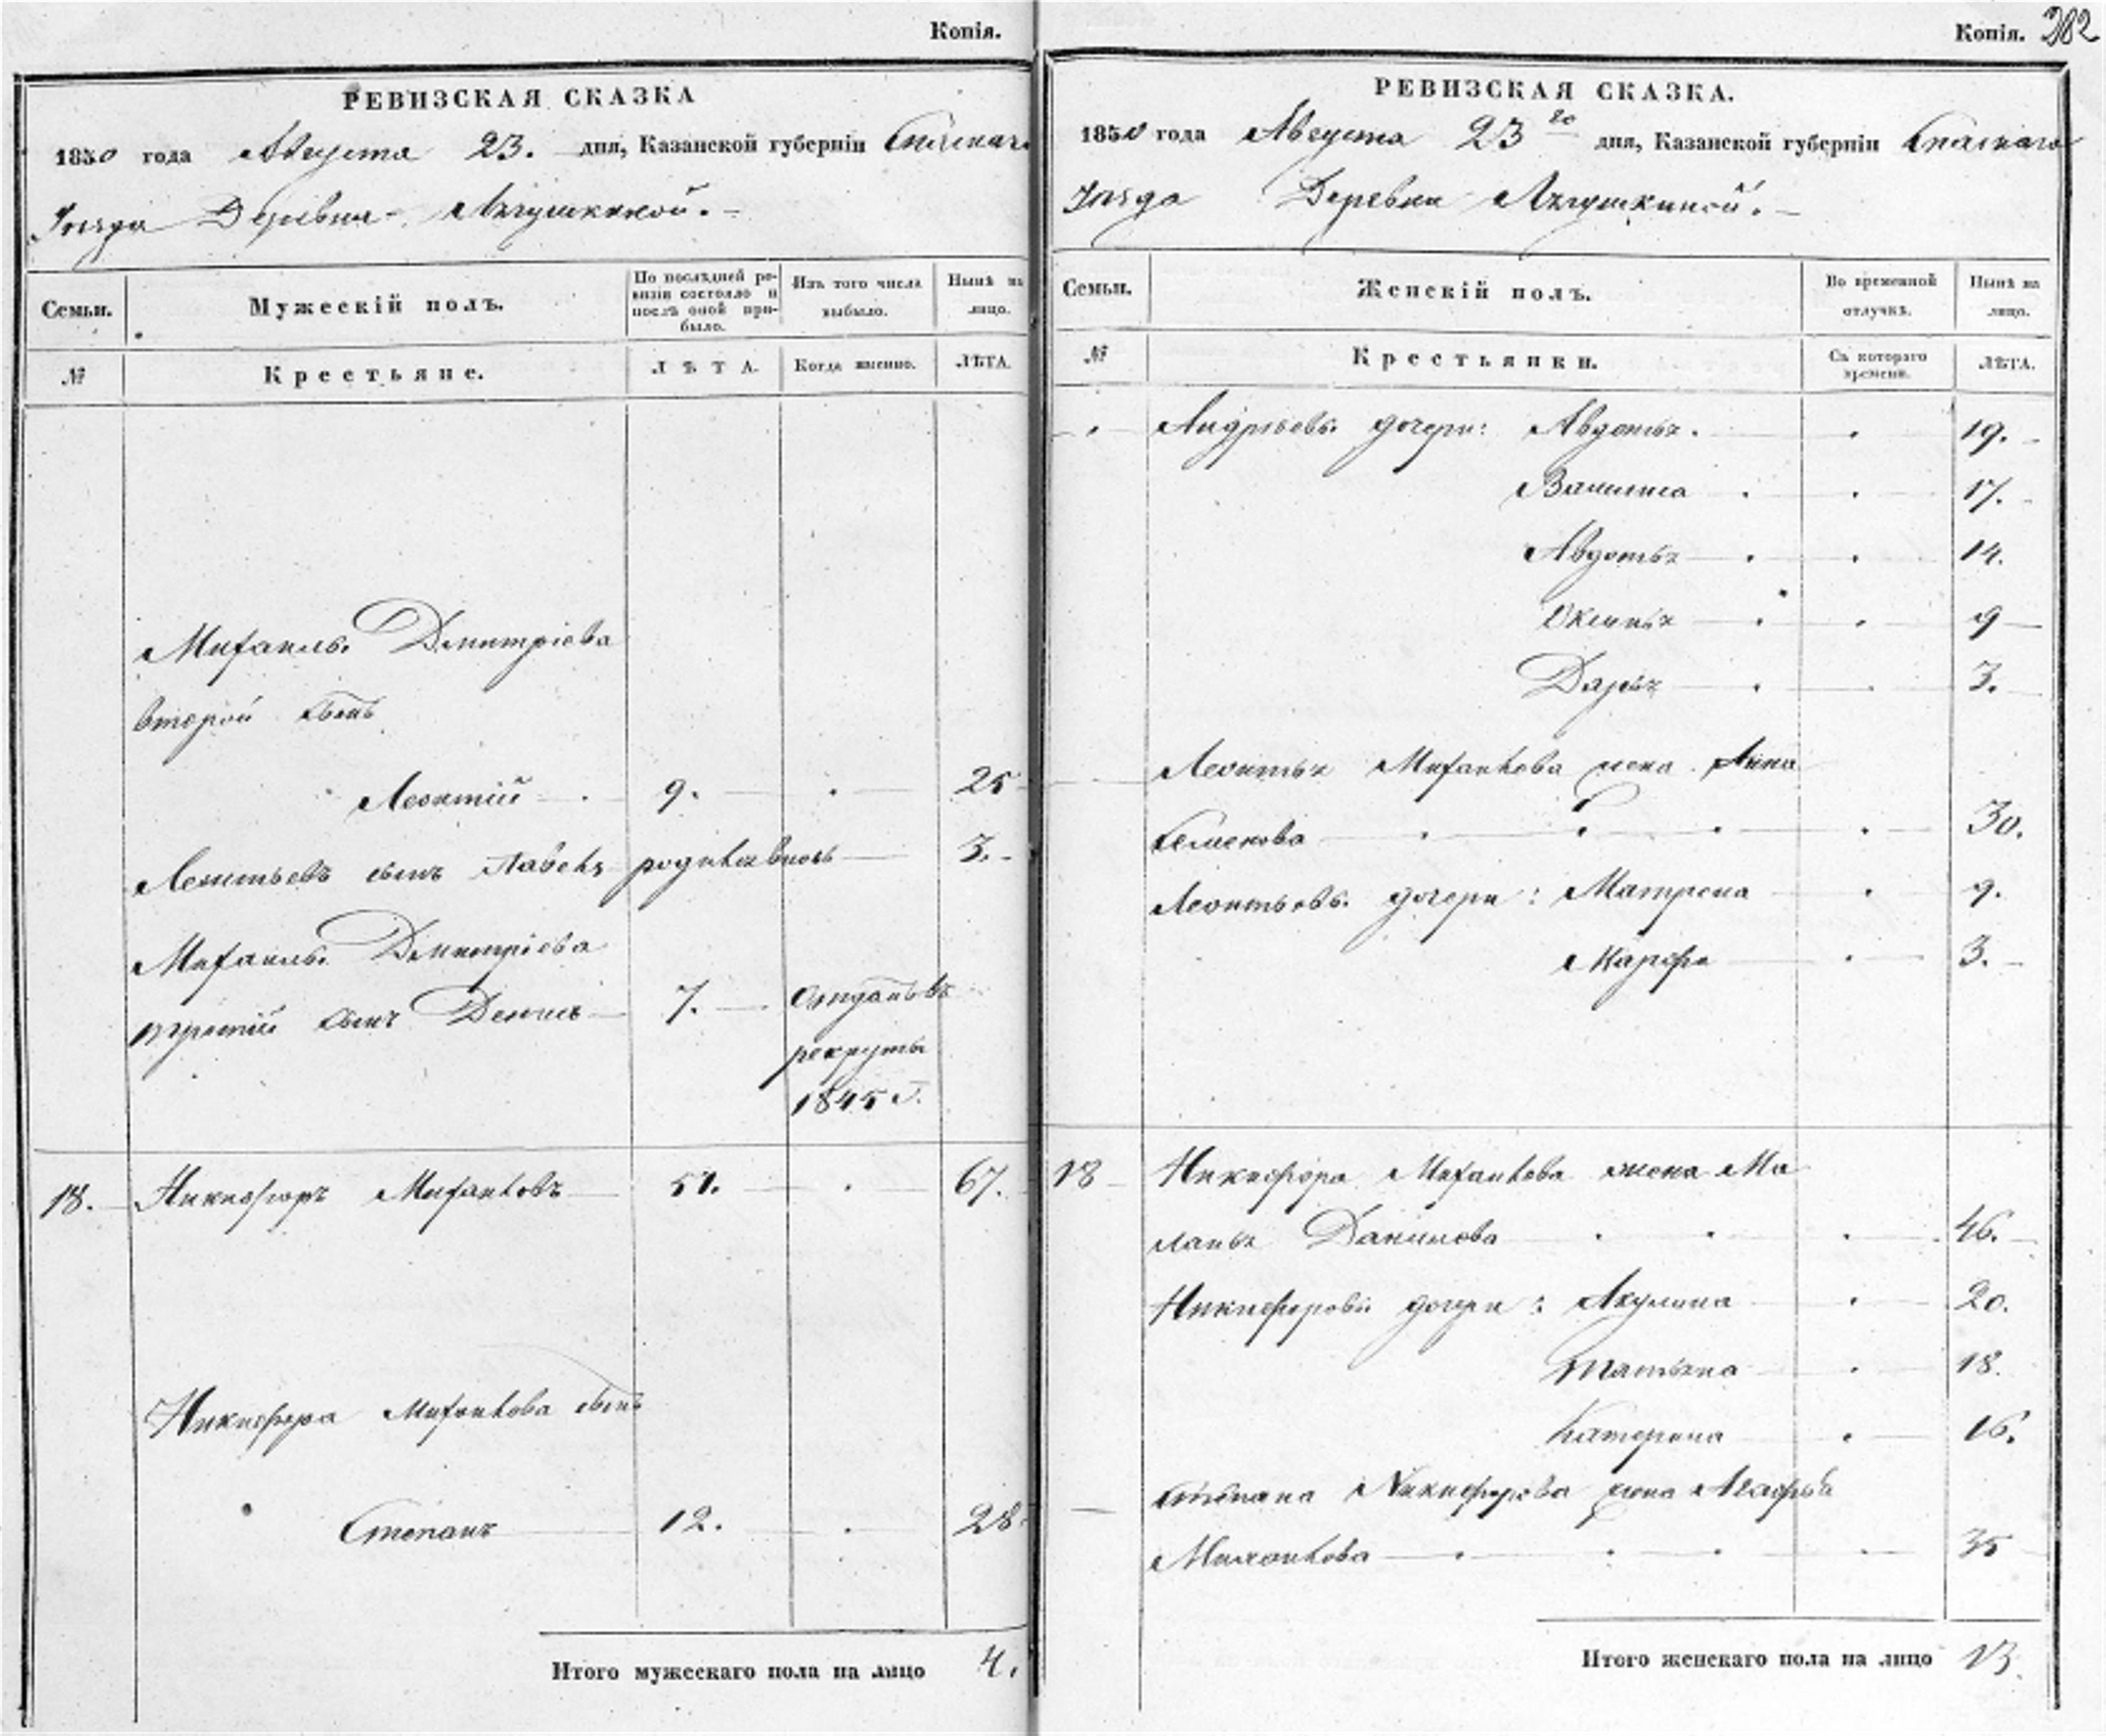 Копія.
РЕВИЗСКАЯ СКАЗКА
1850 года Августа 23. дня, Казанской губерніи Спаскаго
Уѣзда Деревни
Семьи.
Мужескій полъ.
По послѣдней ре-
визіи состояло и
послѣ оной при-
было.
Изъ того числа
выбыло.
Нынѣ на
лицо.
№
Крестьяне.
ЛѢТА.
Когда именно.
ЛѢТА.
Михаилы Дмитріева
второй сынъ
Леонтій 9. 25
Леонтьевъ сынъ Павелъ родился вновь 3.
Михаилы Дмитріева
третій сынъ Денисъ 7. Отданъ въ
рекруты
1845 г.
18. Никифоръ Михайловъ 51. 67.
Никифора Михайлова сынъ
Степанъ 12. 28
Итого мужескаго пола на лицо 4.
Копія. 282
РЕВИЗСКАЯ СКАЗКА.
1850 года Августа 23го дня, Казанской губерніи Спаскаго
Уѣзда Деревни
Семьи.
Женскій полъ.
Во временной
отлучкѣ.
Нынѣ на
лицо.
№
Крестьянки.
Съ котораго
времени.
ЛѢТА.
Андреевы дочери: Авдотья 19.
Василиса 17.
Авдотья 14.
Оксинья 9
Дарья 3.
Леонтья Михайлова жена Анна
Семенова 30.
Леонтьевы дочери: Матрена 9.
Марфа 3.
18 Никифора Михайлова жена Ма
ланья Данилова 46.
Никифоровы дочери: Акулина 20.
Татьяна 18.
Катерина 16.
Степана Никифорова жена Агафья
Михайлова 35
Итого женскаго пола на лицо 13.